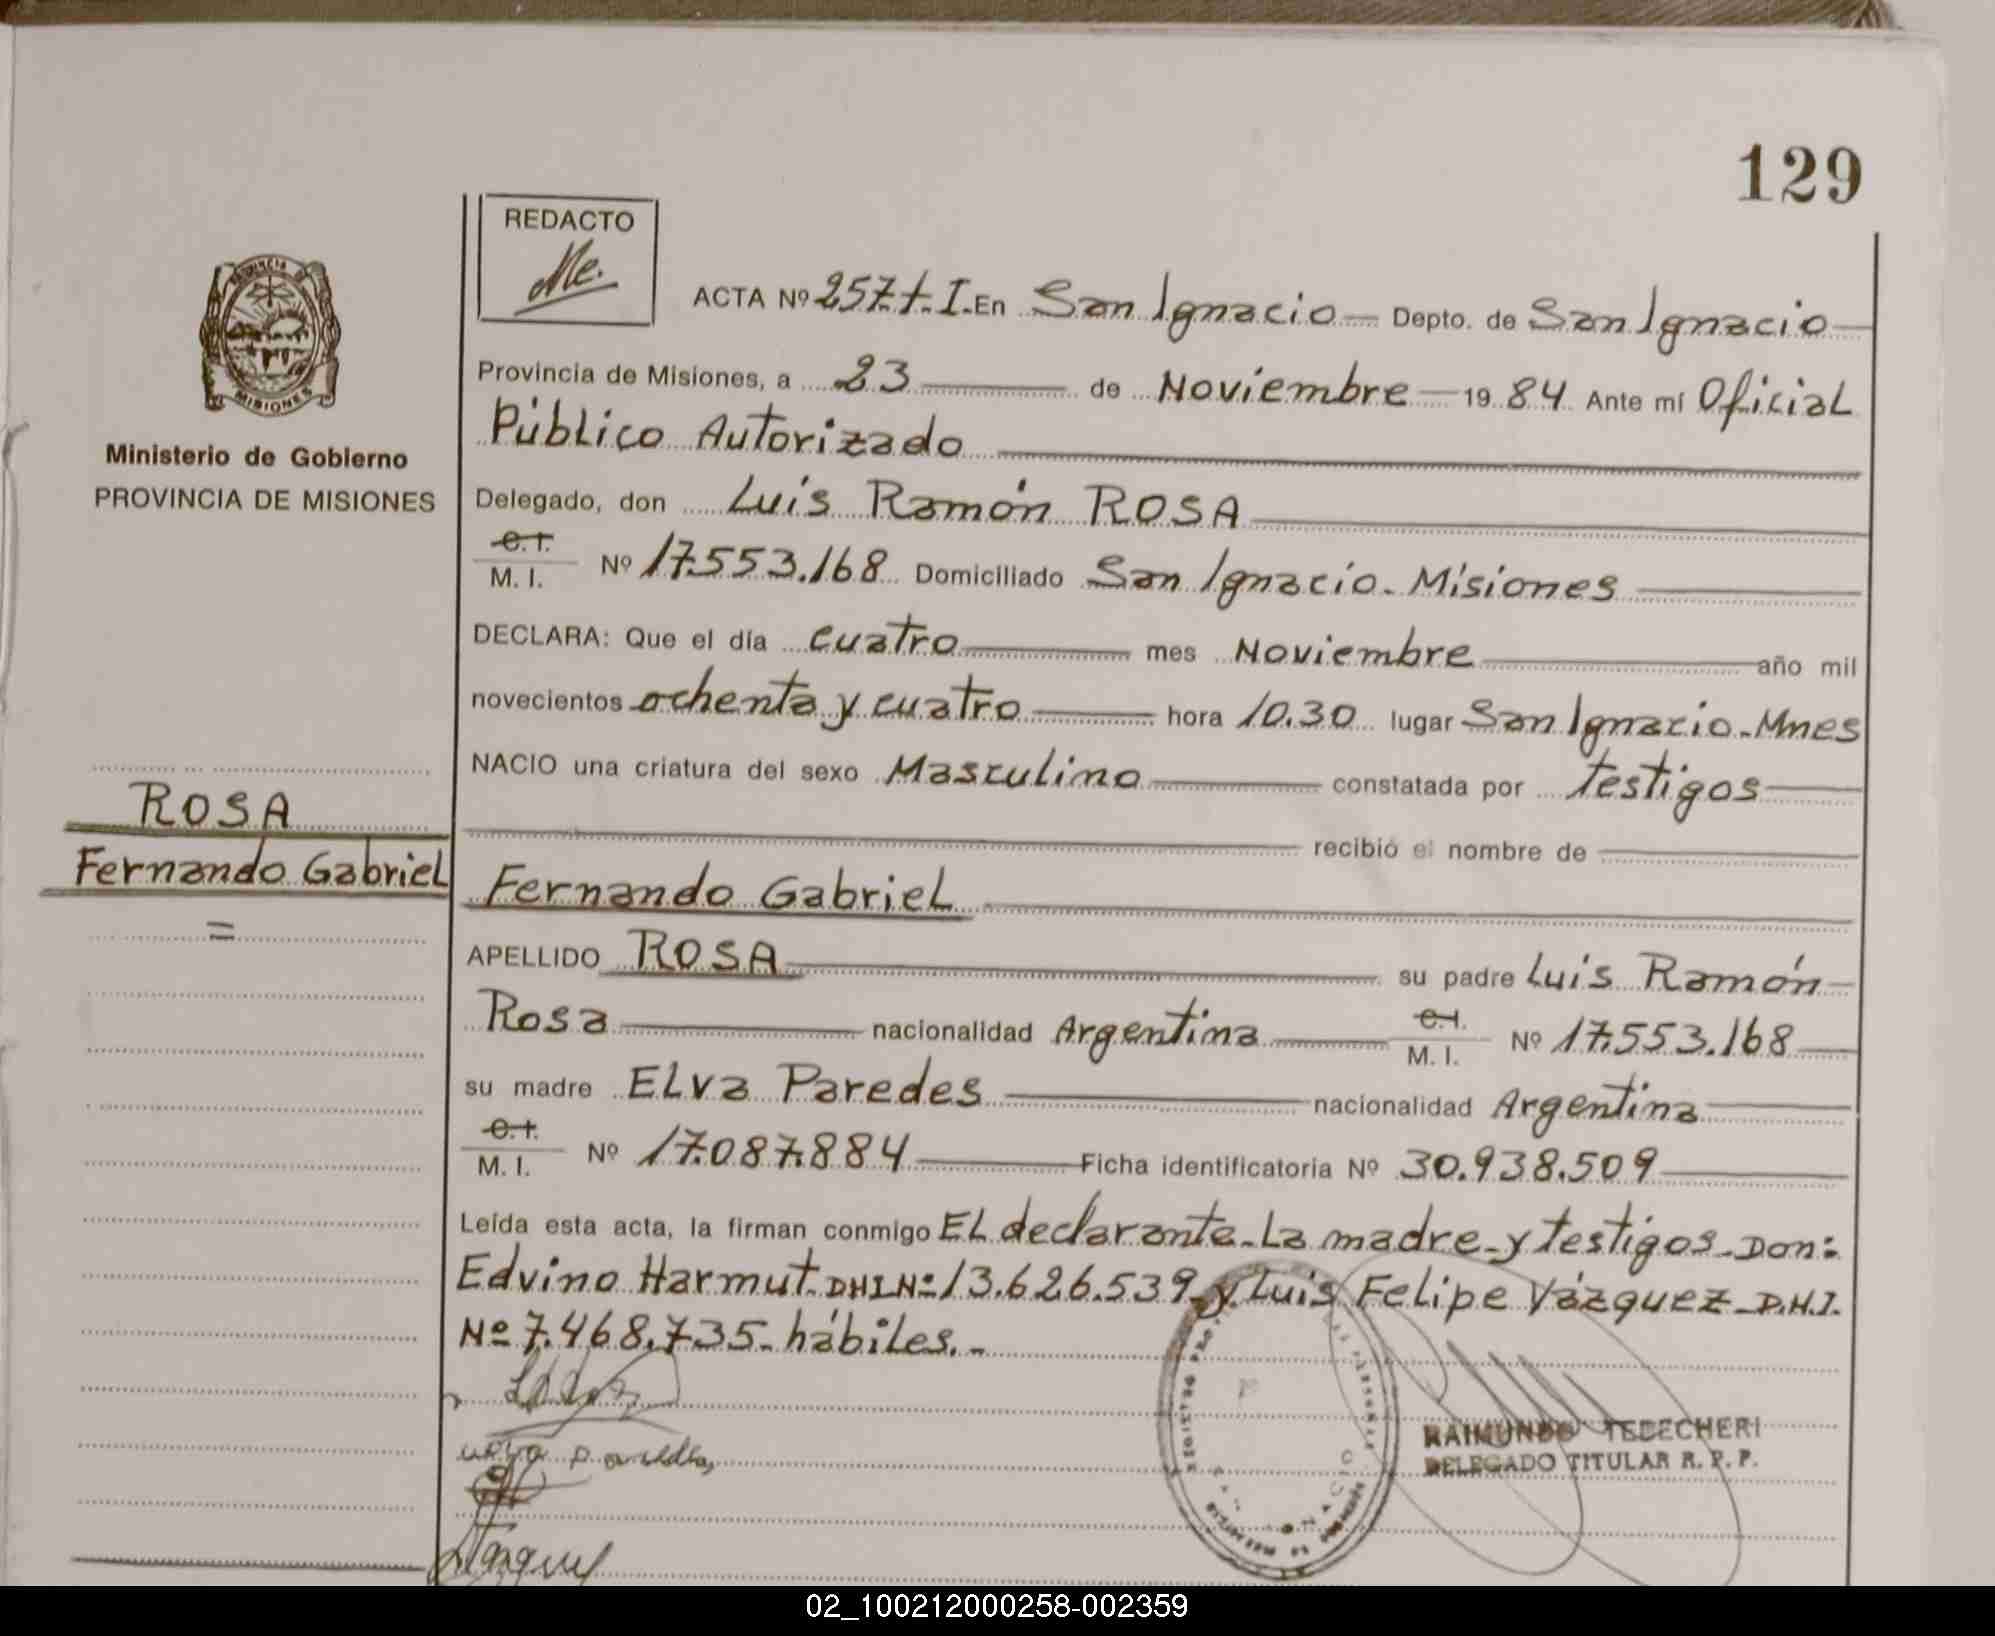 129
REDACTO
Me.
ACTA Nº 257.t.I. En San Ignacio Depto. de San Ignacio
Provincia de Misiones, a 23 de Noviembre 19 84 Ante mí Oficial
Público Autorizado
MISIONES
Ministerio de Gobierno
PROVINCIA DE MISIONES
Delegado, don Luis Ramón ROSA
C. I.
M. I. Nº 17.553.168 Domiciliado San Ignacio. Misiones
DECLARA: Que el día cuatro mes Noviembre año mil
novecientos ochenta y cuatro hora 10.30 lugar San Ignacio. Mnes
NACIO una criatura del sexo Masculino constatada por testigos
recibió el nombre de
ROSA
Fernando Gabriel
=
Fernando Gabriel
APELLIDO ROSA su padre Luis Ramón
Rosa nacionalidad Argentina C. I. M. I. Nº 17.553.168
su madre ELva Paredes nacionalidad Argentina
C. I.
M. I. Nº 17.087.884 Ficha identificatoria Nº 30.938.509
Leída esta acta, la firman conmigo EL declarante-La madre-y testigos-Don:
Edvino Harmut. DNI Nº 13.626.539-y Luis Felipe Vázquez-D.N.I.
Nº 7.468.735-hábiles.-
RAIMUNDO TEDECHERI
DELEGADO TITULAR R. P. P.
02_100212000258-002359